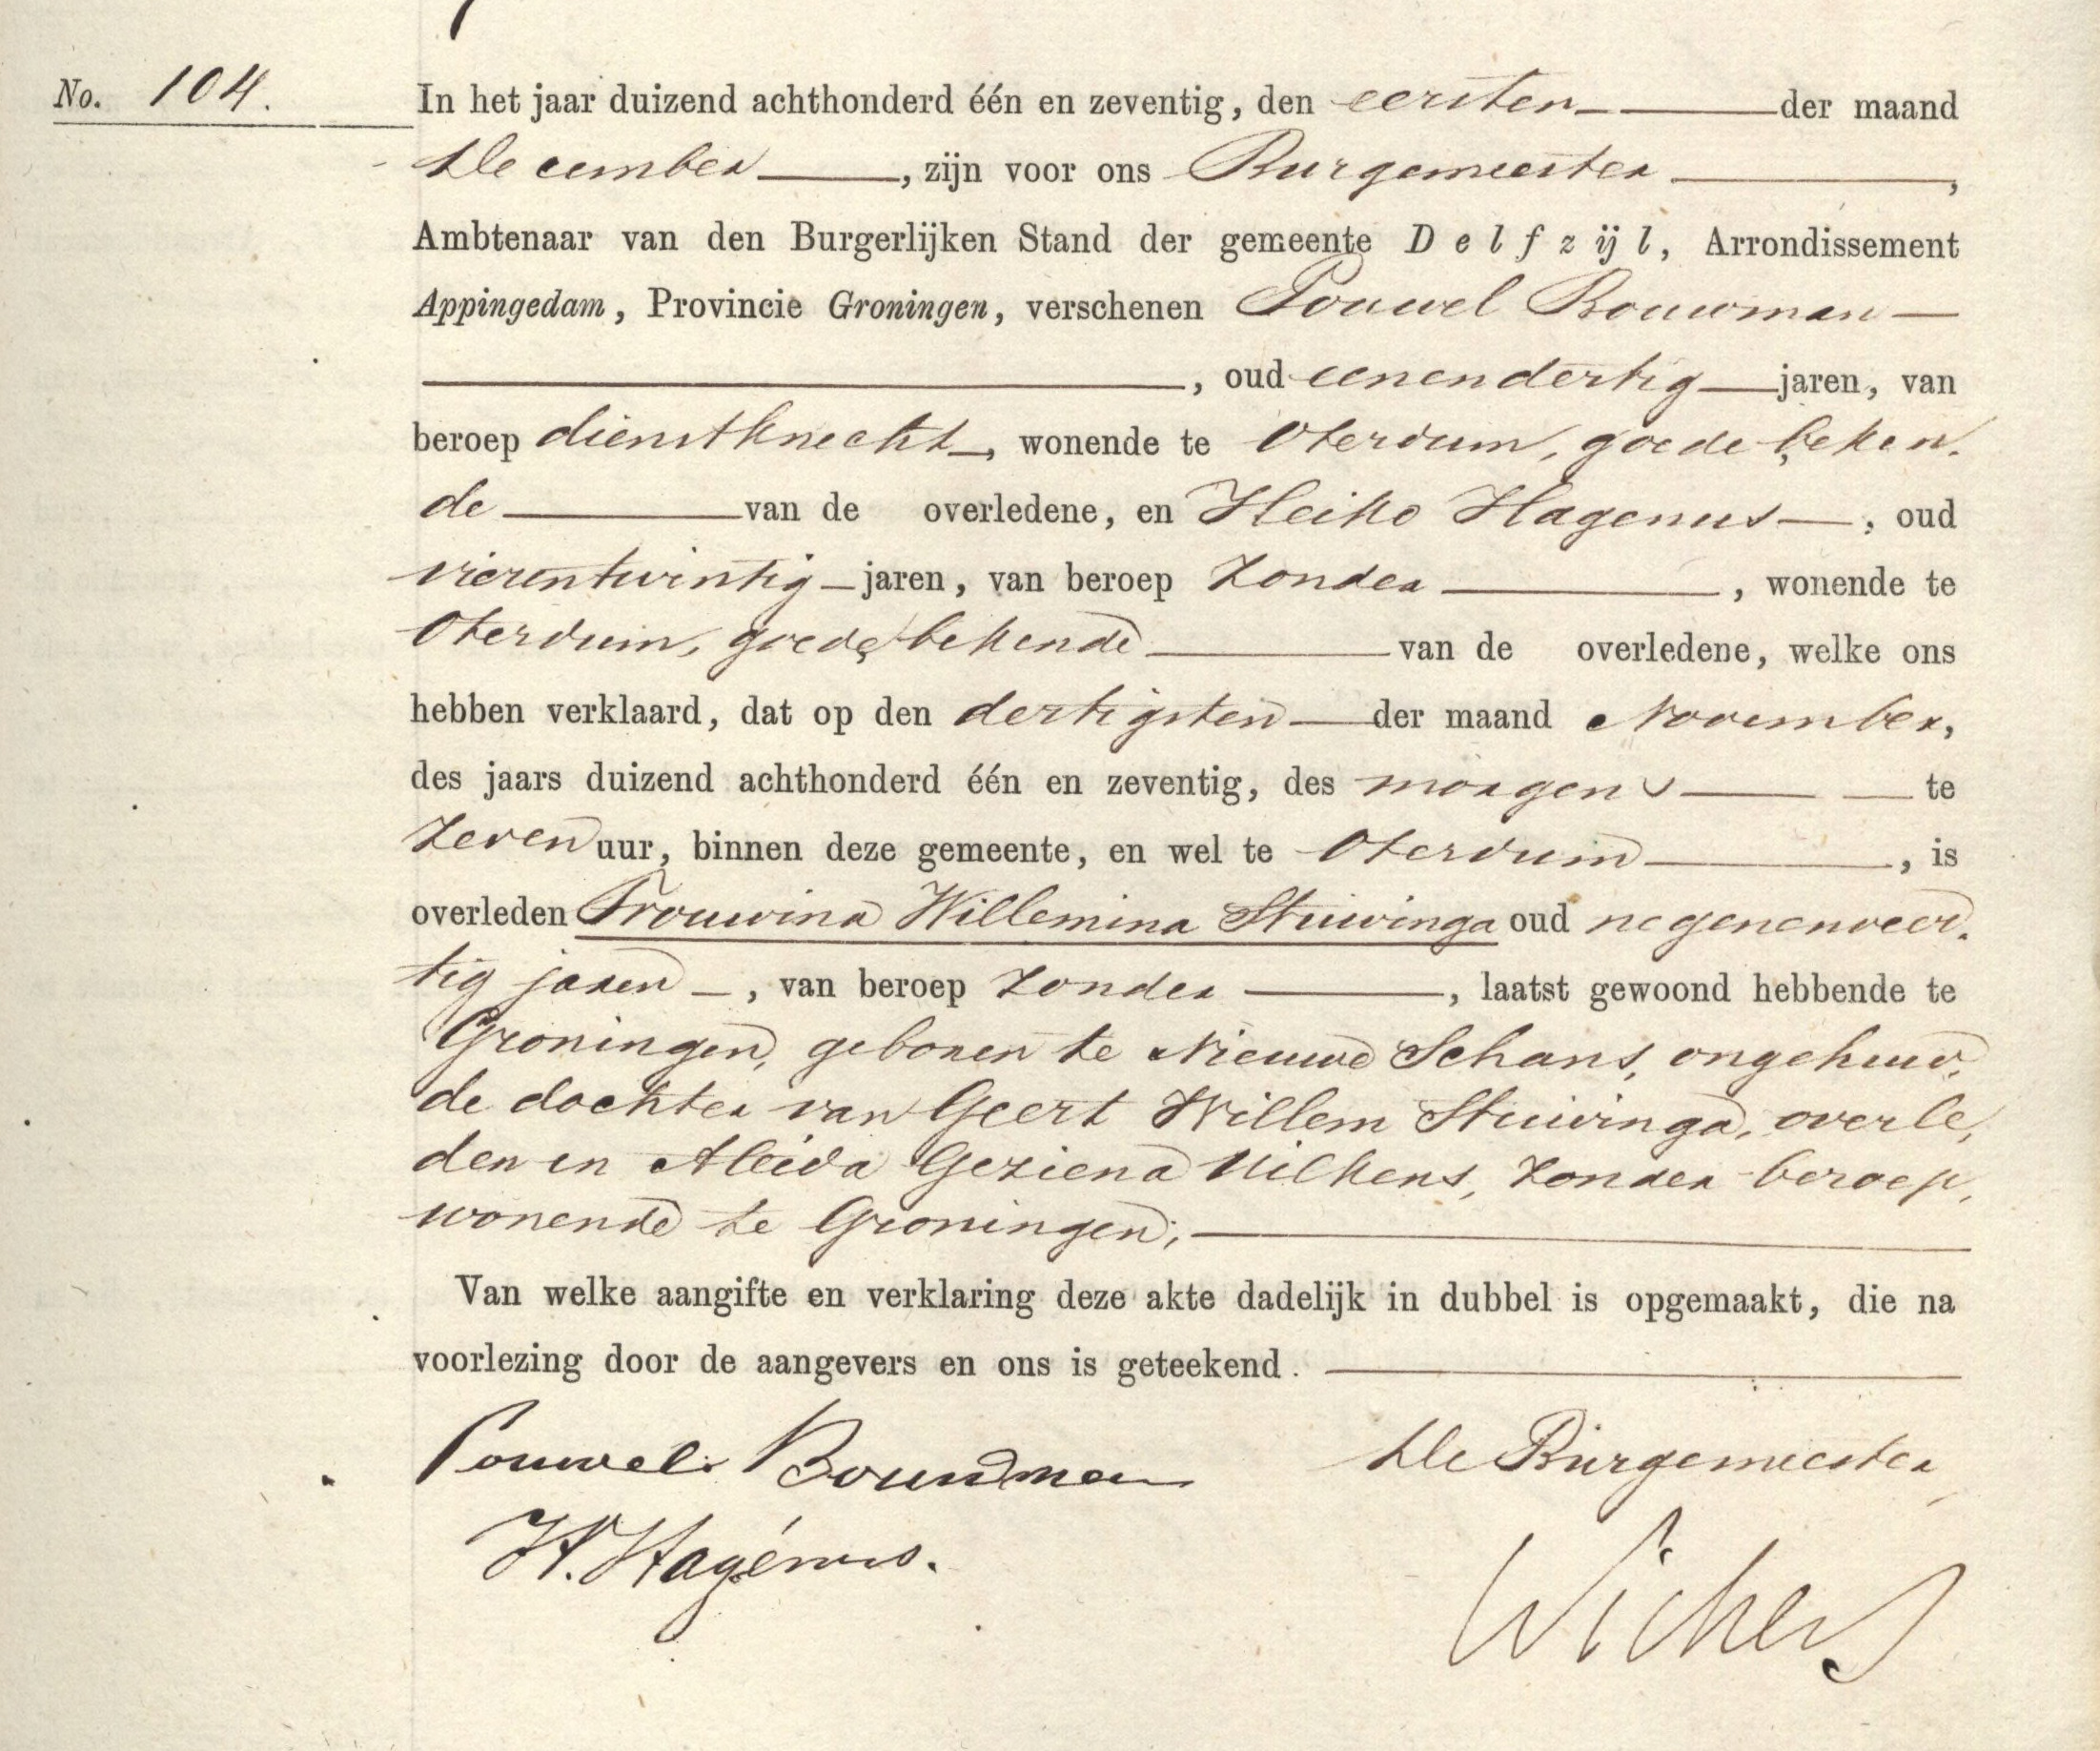 No. 104.
In het jaar duizend achthonderd één en zeventig, den eersten der maand
December, zijn voor ons Burgemeester,
Ambtenaar van den Burgerlijken Stand der gemeente Delfzijl, Arrondissement
Appingedam, Provincie Groningen, verschenen Pouwel Bouwman
, oud eenendertig jaren, van
beroep dienstknecht, wonende te Oterdum, goede beken,
de van de overledene, en Heiko Hagenus, oud
vierentwintig jaren, van beroep zonder, wonende te
Oterdum, goede bekende van de overledene, welke ons
hebben verklaard, dat op den dertigsten der maand November,
des jaars duizend achthonderd één en zeventig, des morgens te
zeven uur, binnen deze gemeente, en wel te Oterdum, is
overleden Trouwina Willemina Stuivinga oud negenenveer,
tig jaren, van beroep zonder, laatst gewoond hebbende te
Groningen, geboren te Nieuwe Schans, ongehuw,
de dochter van Geert Willem Stuivinga, overle,
den en Aleida Geziena Uilkens, zonder beroep,
wonende te Groningen;
Van welke aangifte en verklaring deze akte dadelijk in dubbel is opgemaakt, die na
voorlezing door de aangevers en ons is geteekend.
Pouwel Bouwman De Burgemeester
H. Hagénus. Wichers